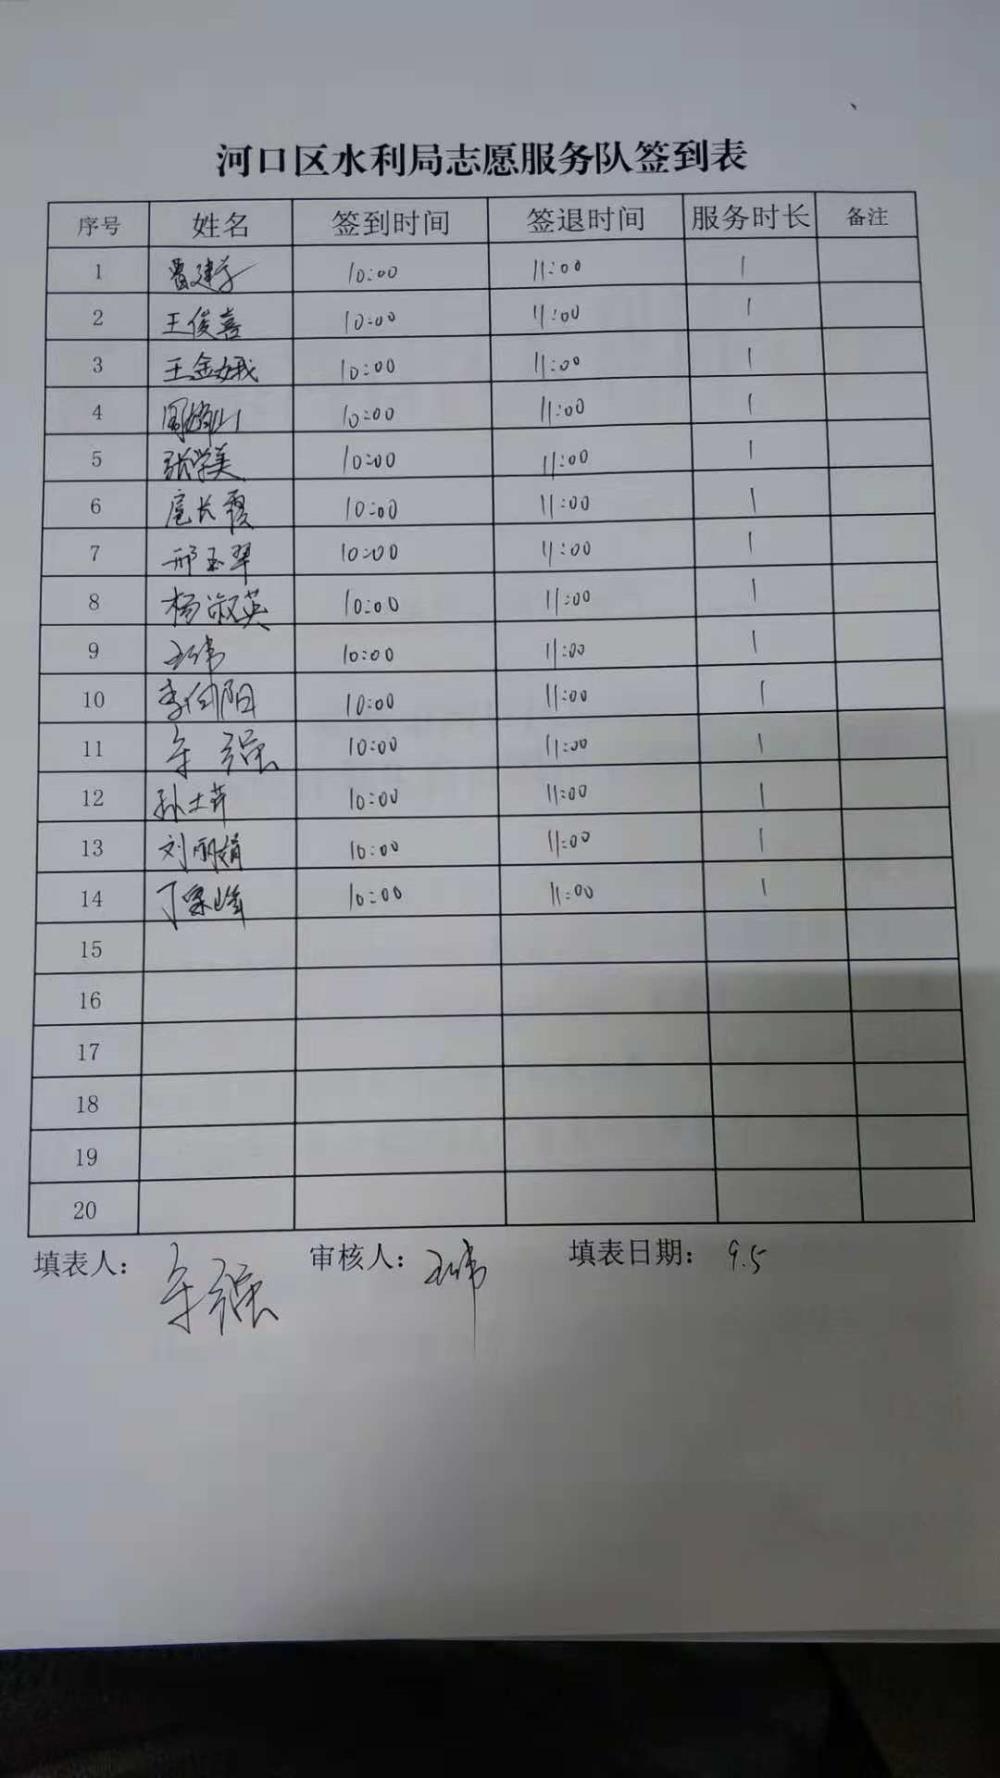 河口区水利局志愿服务队签到表
序号 姓名 签到时间 签退时间 服务时长 备注
1 10:00 11:00 1
2 王俊喜 10:00 11:00 1
3 王金娥 10:00 11:00 1
4 10:00 11:00 1
5 张学美 10:00 11:00 1
6 扈长霞 10:00 11:00 1
7 邢玉翠 10:00 11:00 1
8 杨淑英 10:00 11:00 1
9 王伟 10:00 11:00 1
10 李向阳 10:00 11:00 1
11 强 10:00 11:00 1
12 孙士 10:00 11:00 1
13 刘丽娟 10:00 11:00 1
14 丁 峰 10:00 11:00 1
15
16
17
18
19
20
填表人： 强 审核人：王伟 填表日期：9.5